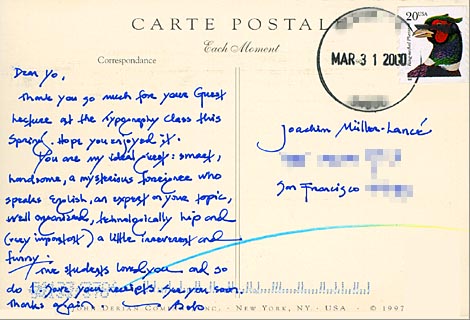 CARTE POSTALE
Each Moment
Correspondance
MAR 31 2000
20USA
Dear Yo,
Thank you so much for your Guest
Lecture at the Typography class this
Spring. Hope you enjoyed it.
You are my ideal guest: smart,
handsome, a mysterious foreigner who
speaks English, an expert on your topic,
well organized, technologically hip and
(very important) a little irreverent and
funny.
The students loved you and so
do I. Save your receipts. See you soon.
Thanks again.
Joachim Müller-Lancé
San Francisco
JOHN DERIAN COMPANY INC. · NEW YORK, NY · USA · © 1997